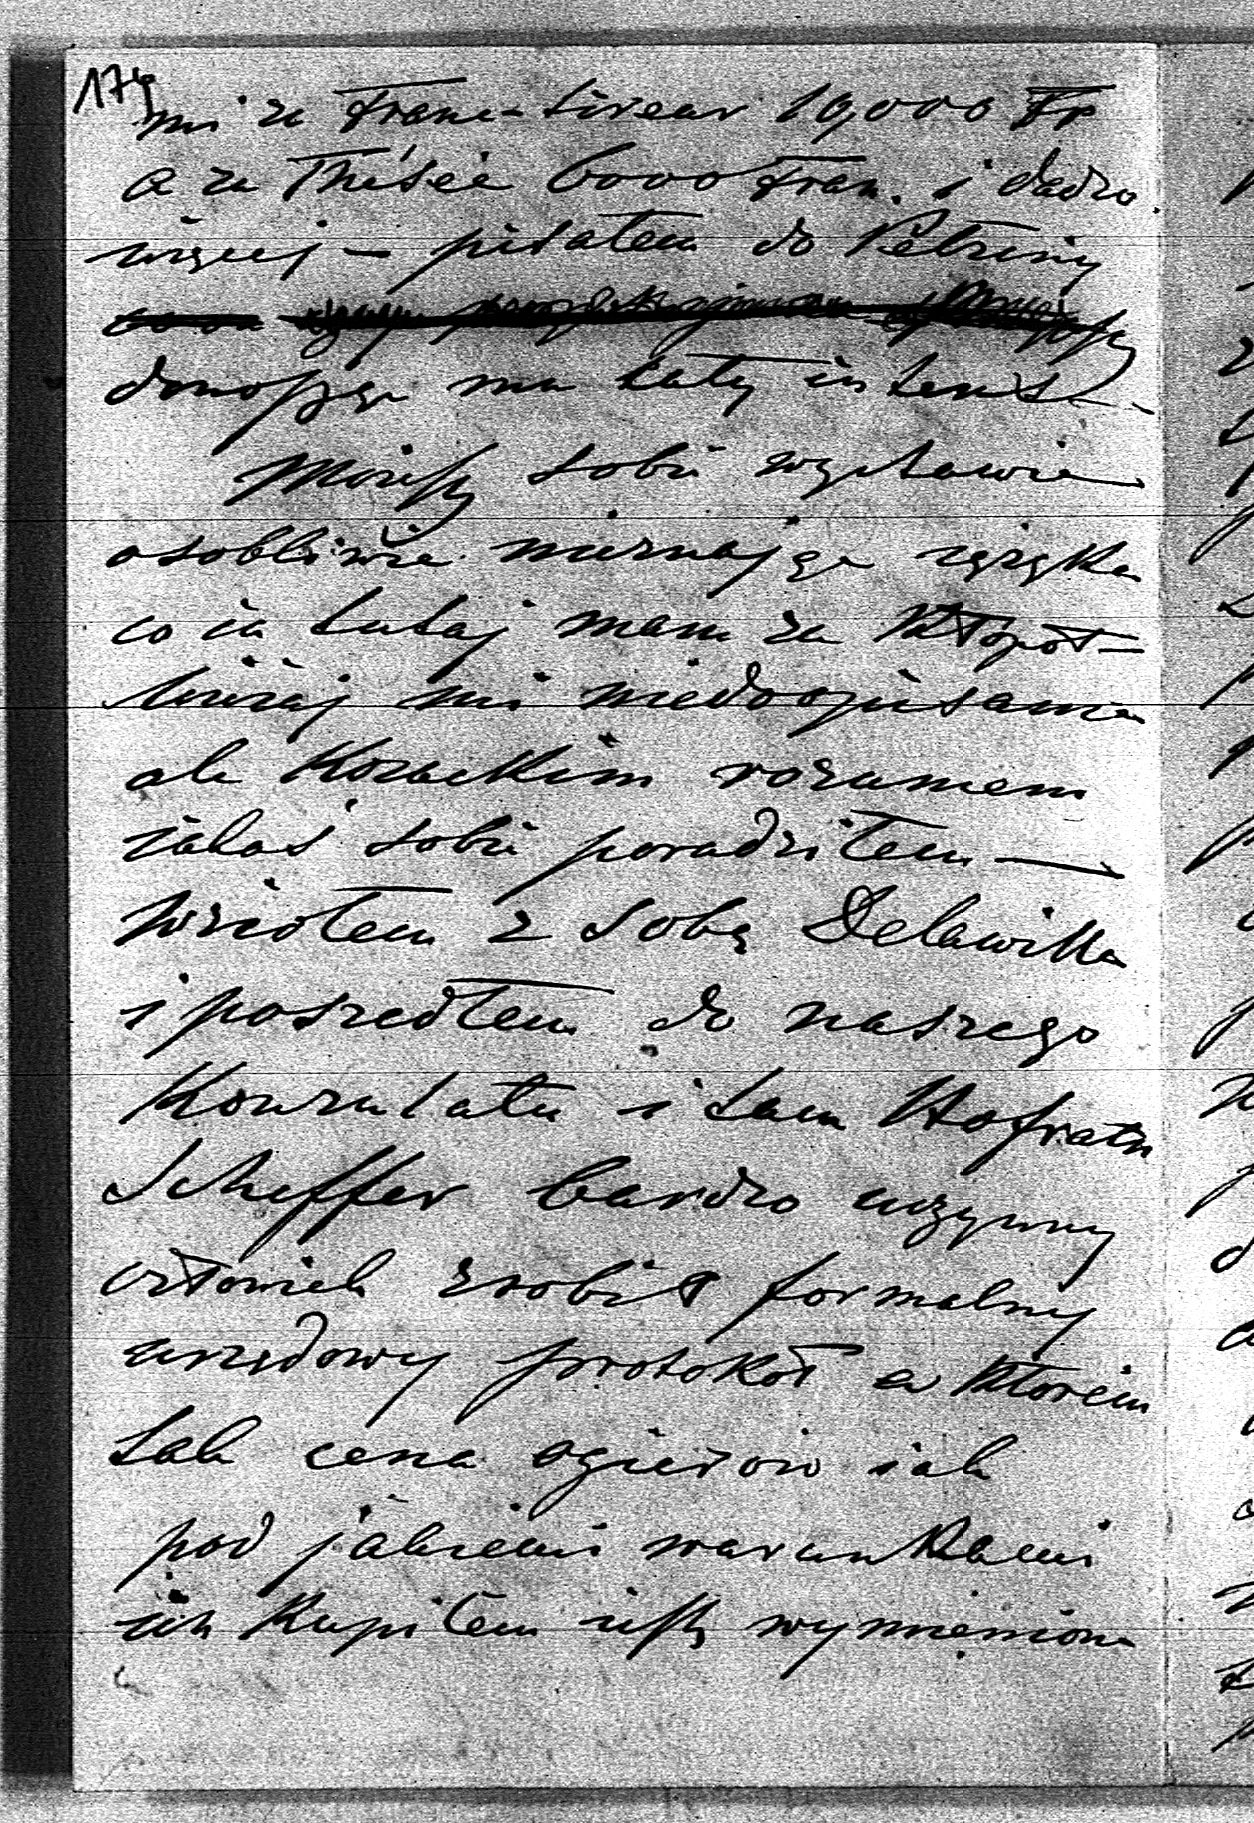 174
mi za Franc-tireur 10,000 Fr
a za Thésée 6000 Fran. i dadzo
więcej – pisałem do Petriny
donosząc mu cały interes –
Możesz sobie wystawić
osobliwie nieznając języka
co ia tutaj mam za kłopot –
mi niedoopisania
ale Kozackim rozumem
iakoś sobie poradziłem –
Wziołem z sobą Delawikka
i poszedłem do naszego
Konzulatu i tam Hofrath
Scheffer bardzo uczynny
człowiek zrobił formalny
urzędowy protokół w ktorem
tak cena ogierow iak
pod jakiemi warunkami
ich kupiłem iest wymienione